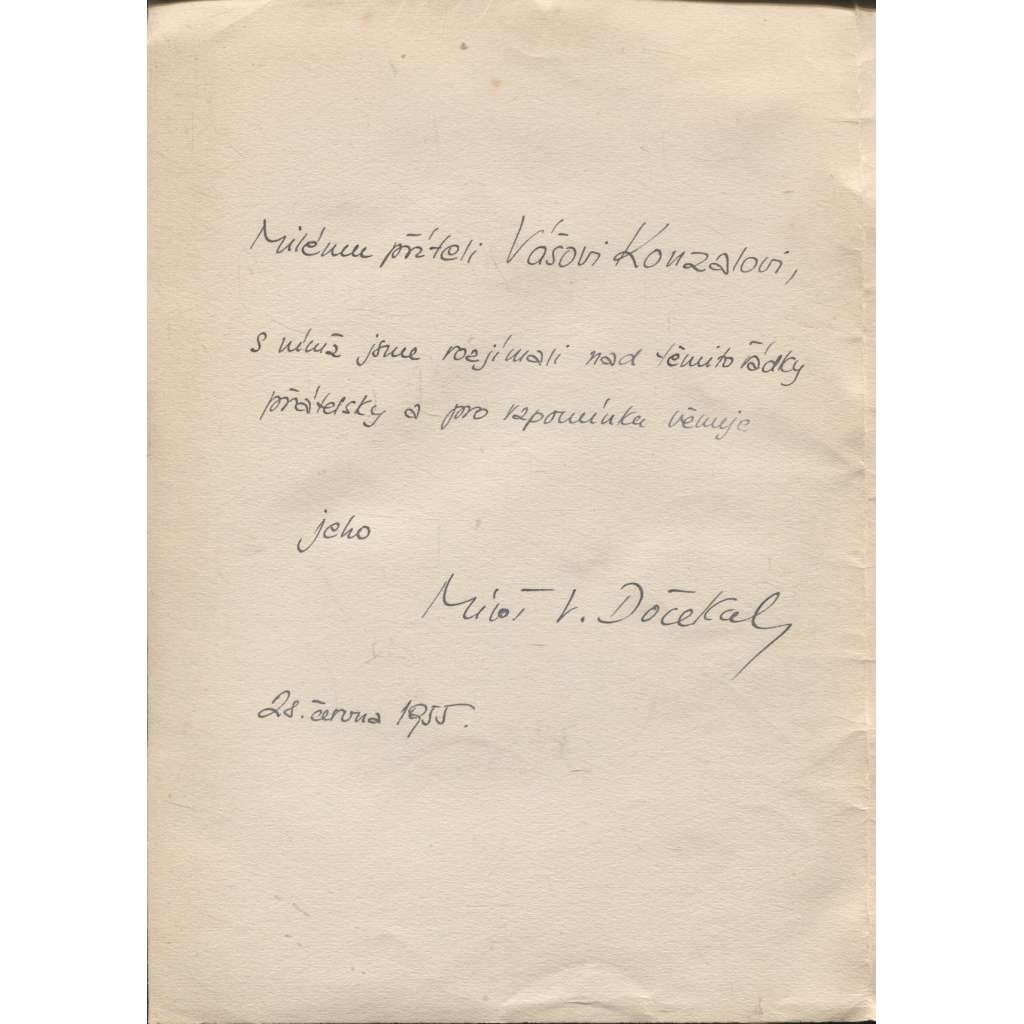 Milému příteli Vášovi Konzalovi,
s nímž jsme rozjímali nad těmito řádky
přátelsky a pro vzpomínku věnuje
jeho
Miloš V. Dočekal
28. června 1955.